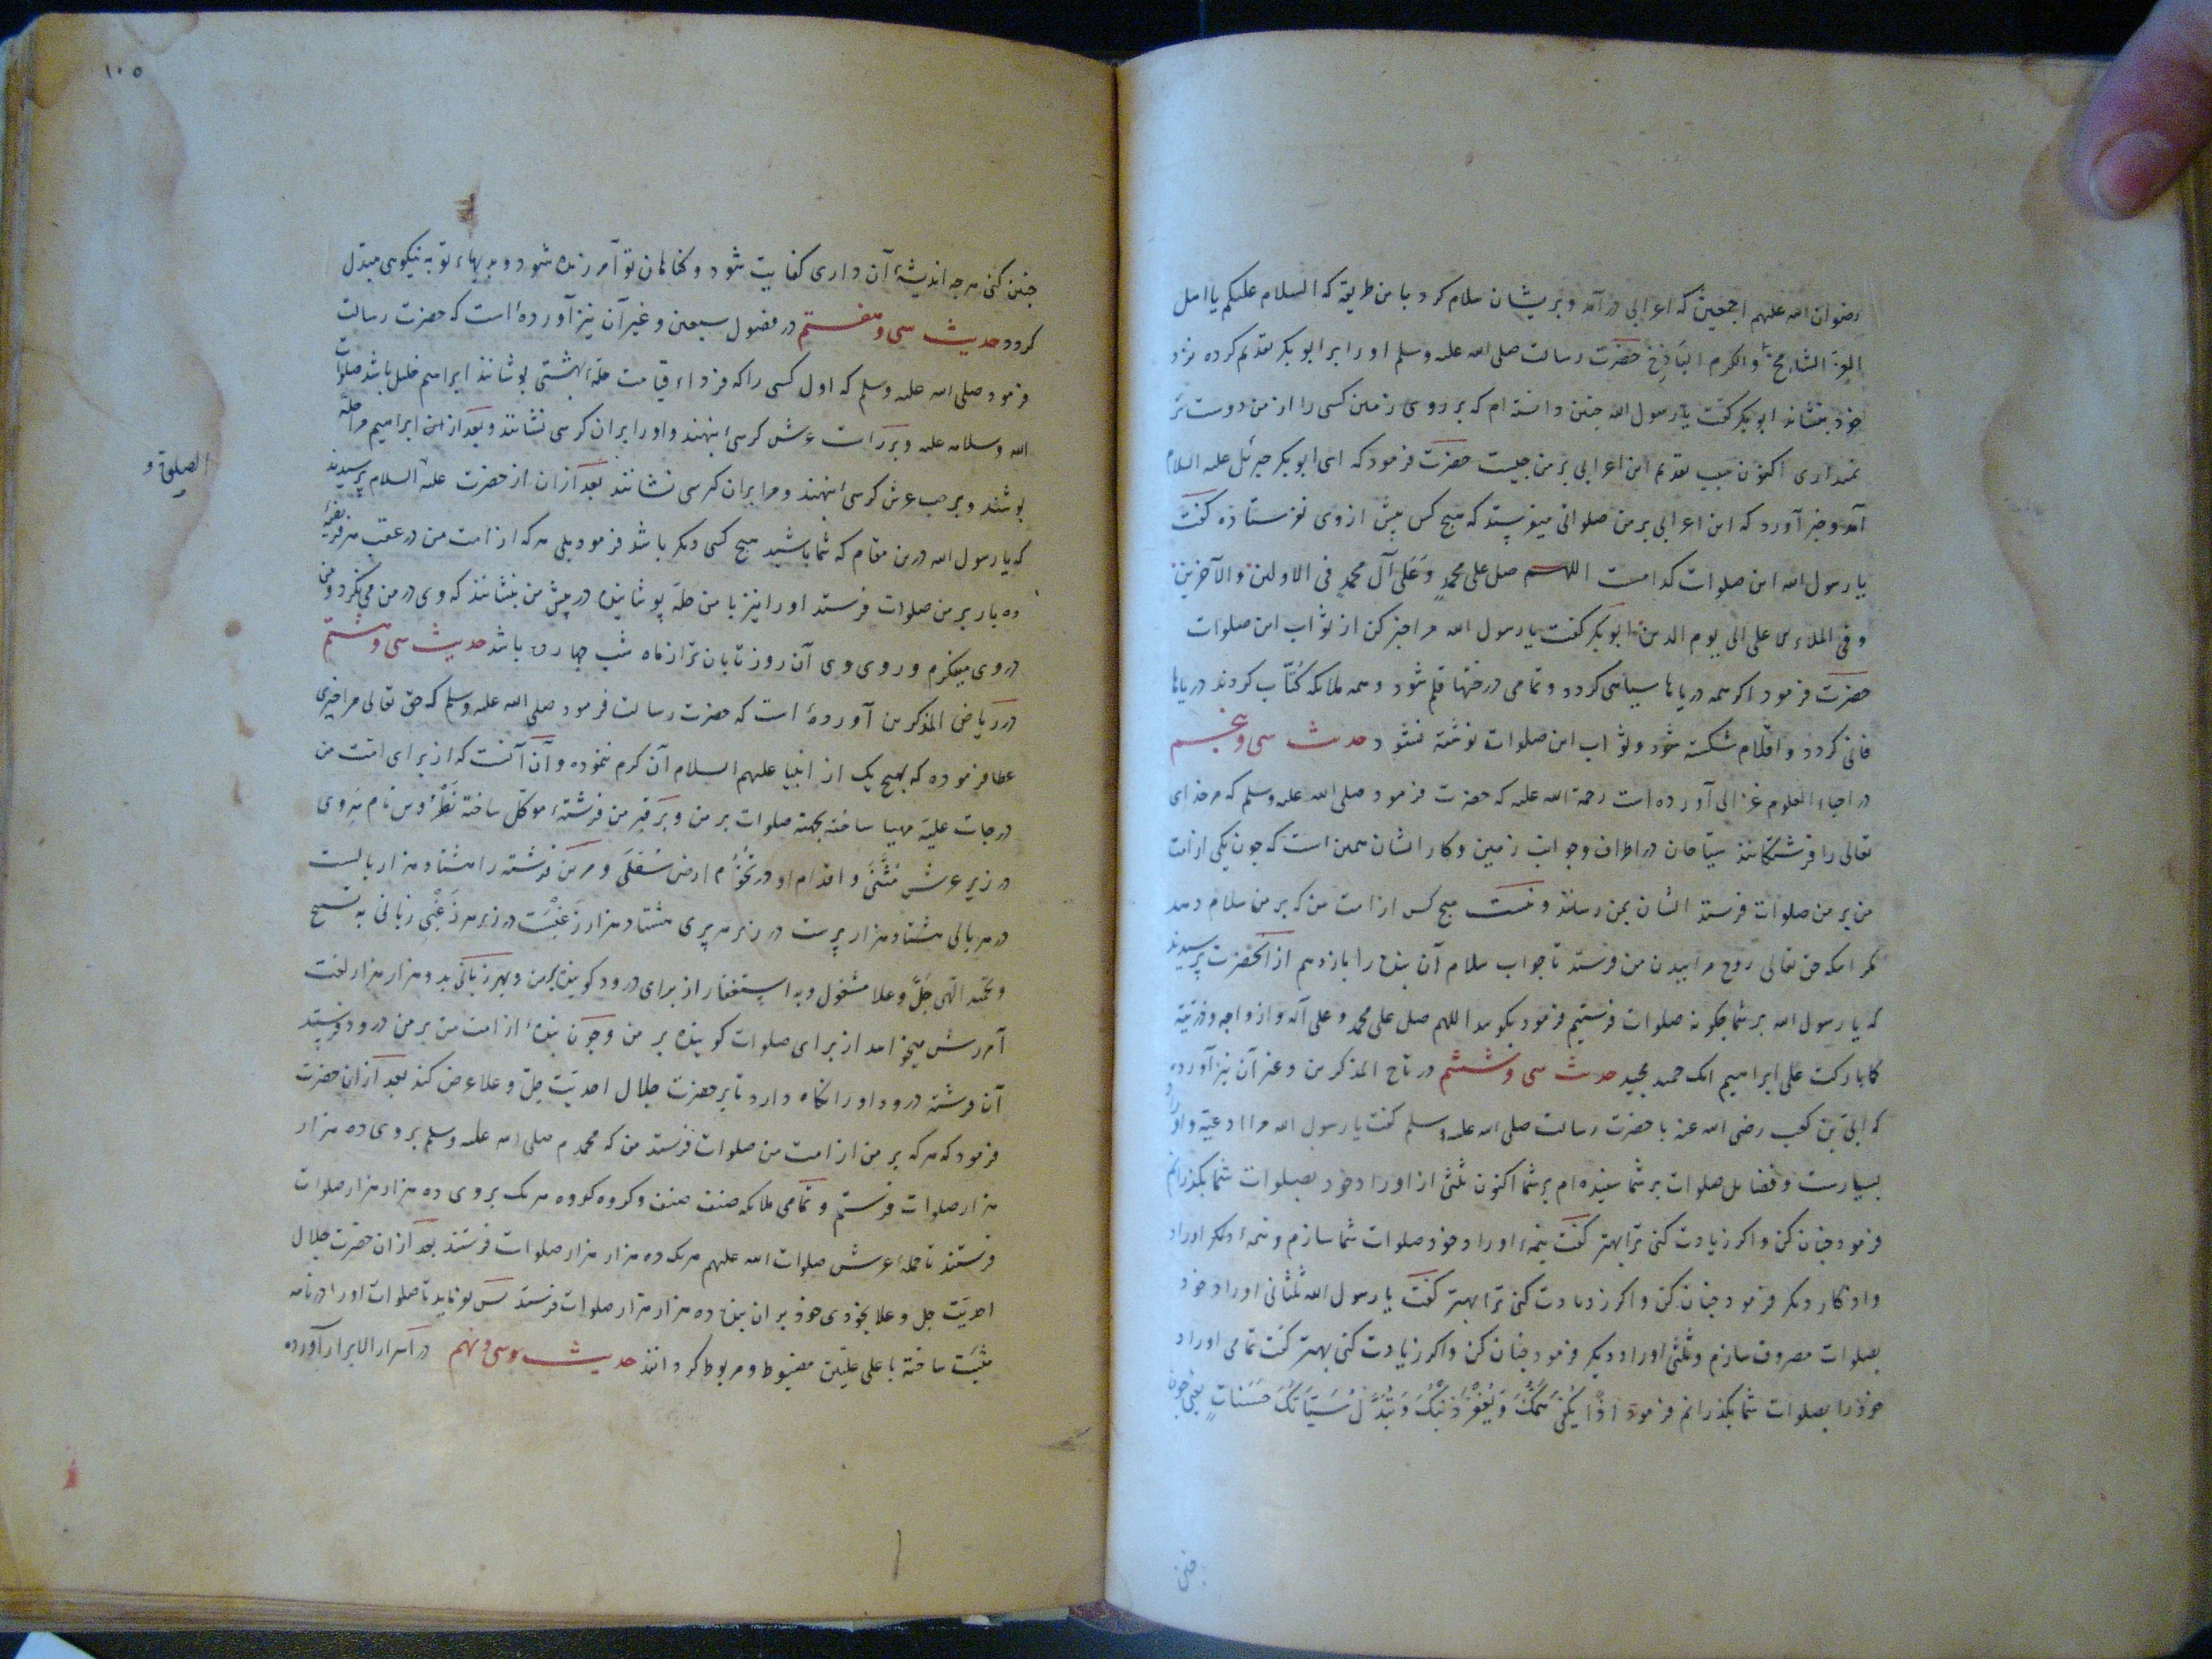 رضوان الله علیهم اجمعین که اعرابی درآمد و بریشان سلام کرد باین طریقه که السلام علیکم یا اهل
العز الشامخ والکرم الباذخ حضرت رسالت صلی الله علیه وسلم او را بر ابوبکر تقدیم کرده نزد
خود بنشاند ابوبکر گفت یا رسول الله جنین دانسته ام که بر روی زمین کسی را از من دوست تر
نمیداری اکنون سبب تقدیم این اعرابی بر من جیست حضرت فرمود که ای ابوبکر جبرئیل علیه السلام
آمد و خبر آورد که این اعرابی بر من صلواتی میفرستد که هیج کس پیش از وی نفرستاده گفت
یا رسول الله این صلوات کدامست اللهم صل علی محمد وعلی آل محمد فی الاولین والآخرین
وفی الملاء الاعلی الی یوم الدین ابوبکر گفت یا رسول الله مرا خبر کن از ثواب این صلوات
حضرت فرمود اگر همه دریاها سیاهی کردد و تمامی درختها قلم شود و همه ملائکه کتّاب کردند دریاها
فانی کردد و اقلام شکسته شود و ثواب این صلوات نوشته نشود حدیث سی و پنجم
در احیاء العلوم غزالی آورده است رحمة الله علیه که حضرت فرمود صلی الله علیه وسلم که مر خدای
تعالی را فرشتکانند سیاحان در اطراف و جوانب زمین و کار ایشان همین است که جون یکی از امت
من بر من صلوات فرستد ایشان بمن رسانند و نیست هیج کس از امت من که بر من سلام دهد
مکر آنکه حق تعالی روح مرا ببدن من فرستد تا جواب سلام آن بنده را باز دهم از آنحضرت پرسیدند
که یا رسول الله بر شما جکونه صلوات فرستیم فرمود بکویید اللهم صل علی محمد وعلی آله وازواجه وذریته
کما بارکت علی ابراهیم انک حمید مجید حدیث سی و ششم در تاج المذکرین و غیر آن نیز آورده
که ابی بن کعب رضی الله عنه با حضرت رسالت صلی الله علیه وسلم گفت یا رسول الله مرا ادعیه و اوراد
بسیارست و فضایل صلوات بر شما شنیده ام بر شما اکنون ثلثی از اوراد خود بصلوات شما بکذرانم
فرمود جنان کن و اکر زیادت کنی ترا بهتر گفت نیمۀ اوراد خود صلوات شما سازم و نیمۀ دیکر اوراد
و اذکار دیکر فرمود جنان کن و اکر زیادت کنی ترا بهتر گفت یا رسول الله ثلثانی اوراد خود
بصلوات مصروف سازم و ثلثی اوراد دیکر فرمود جنان کن و اکر زیادت کنی بهتر گفت تمامی اوراد
خود را بصلوات شما بکذرانم فرمود اذًا یُکْفی هَمُّکَ وَیُغْفَرُ ذَنْبُکَ وَتُبَدَّلُ سَیِّاَتُکَ حَسَنَاتٍ یعنی جون
جنین
۱۰۵
جنین کنی هرجه اندیشۀ آن داری کفایت شود و کناهان تو آمرزیده شود و بدیهاء تو به نیکویی مبدل
کردد حدیث سی و هفتم در فصول سبعین و غیر آن نیز آورده است که حضرت رسالت
فرمود صلی الله علیه وسلم که اول کسی را که فرداء قیامت حلۀ بهشتی پوشانند ابراهیم خلیل باشد صلوات
الله وسلامه علیه و بر راست عرش کرسی بنهند و او را بران کرسی نشانند و بعد از این ابراهیم مرا حلّه
پوشند و بر جب عرش کرسی بنهند و مرا بران کرسی نشانند بعد ازان از حضرت علیه السلام پرسیدند
الصلوة و
که یا رسول الله درین مقام که شما باشید هیج کسی دیکر باشد فرمود بلی هر که از امت من در عقب هر فریضۀ
ده بار بر من صلوات فرستد او را نیز با من حلّه پوشانیده در پیش من بنشانند که وی در من می نکرد و من
در وی میکرم و روی وی آن روز تابان تر از ماه شب جهارده باشد حدیث سی و هشتم
در ریاض المذکرین آورده است که حضرت رسالت فرمود صلی الله علیه وسلم که حق تعالی مرا جیزی
عطا فرموده که بهیج یک از انبیا علیهم السلام آن کرم ننموده و آن آنست که از برای امت من
درجات علیّه مهیا ساخته بجهة صلوات بر من و بر قبر من فرشتۀ موکل ساخته نام سر وی
در زیر عرش و اقدام او در تخوم ارض سفلی و مرین فرشته را هشتاد هزار بالست
در هر بالی هشتاد هزار پرست در زیر هر پری هشتاد هزار زغبست در زیر هر زغبی زبانی به تسبیح
و تحمید الهی جلّ وعلا مشغول و به استغفار از برای درود کوینده بر من و بهر زبانی بدو هزار هزار لغت
آمرزش میخواهد از برای صلوات کوینده بر من و جون بندۀ از امت من بر من درود فرستد
آن فرشته درود او را نکاه دارد تا بر حضرت جلال احدیّت جلّ وعلا عرض کند بعد ازان حضرت
فرمود که هر که بر من از امت من صلوات فرستد من که محمدم صلی الله علیه وسلم بر وی ده هزار
هزار صلوات فرستم و تمامی ملائکه صنف صنف و کروه کروه هر یک بر وی ده هزار هزار صلوات
فرستند تا حملۀ عرش صلوات الله علیهم هر یک ده هزار هزار صلوات فرستند بعد ازان حضرت جلال
احدیّت جل وعلا بخودی خود بر آن بنده ده هزار هزار صلوات فرستد پس بفرماید تا صلوات او را در نامه
مثبت ساخته باعلی علیّین مضبوط و مربوط کردانند حدیث سی و نهم در اسرار الابرار آورده